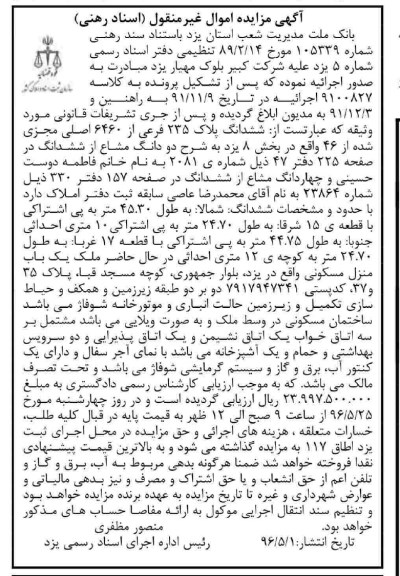 آگهی مزایده اموال غیرمنقول (اسناد رهنی)
بانک ملت مدیریت شعب استان یزد باستناد سند رهنی
شماره ۱۰۵۳۳۹ مورخ ۸۹/۲/۱۴ تنظیمی دفتر اسناد رسمی
شماره ۵ یزد علیه شرکت کبیر بلوک مهیار یزد مبادرت به
صدور اجرائیه نموده که پس از تشکیل پرونده به کلاسه
۹۱۰۰۸۲۷ اجرائیه در تاریخ ۹۱/۱۱/۹ به راهنین و
۹۱/۱۲/۳ به مدیون ابلاغ گردیده و پس از جری تشریفات قانونی مورد
وثیقه که عبارتست از: ششدانگ پلاک ۲۳۵ فرعی از ۶۴۶۰ اصلی مجزی
شده از ۴۶ واقع در بخش ۸ یزد به شرح دو دانگ مشاع از ششدانگ در
صفحه ۲۲۵ دفتر ۴۷ ذیل شماره ی ۲۰۸۱ به نام خانم فاطمه دوست
حسینی و چهاردانگ مشاع از ششدانگ در صفحه ۱۵۷ دفتر ۳۳۰ ذیل
شماره ۲۳۸۶۴ به نام آقای محمدرضا عاصی سابقه ثبت دفتر املاک دارد
با حدود و مشخصات ششدانگ: شمالا: به طول ۴۵.۳۰ متر به پی اشتراکی
با قطعه ی ۱۵ شرقا: به طول ۲۴.۷۰ متر به پی اشتراکی۱۰ متری احداثی
جنوبا: به طول ۴۴.۷۵ متر به پی اشتراکی با قطعه ۱۷ غربا: به طول
۲۴.۷۰ متر به کوچه ی ۱۲ متری احداثی در حال حاضر ملک یک باب
منزل مسکونی واقع در یزد، بلوار جمهوری، کوچه مسجد قبا، پلاک ۳۵
و۳۷، کدپستی ۷۹۱۷۹۴۷۳۴۱ دو بر دو طبقه زیرزمین و همکف و حیاط
سازی تکمیل و زیرزمین حالت انباری و موتورخانه شوفاژ می باشد
ساختمان مسکونی در وسط ملک و به صورت ویلایی می باشد مشتمل بر
سه اتاق خواب یک اتاق نشیمن و یک اتاق پذیرایی و دو سرویس
بهداشتی و حمام و یک آشپزخانه می باشد با نمای آجر سفال و دارای یک
کنتور آب، برق و گاز و سیستم گرمایشی شوفاژ می باشد و تحت تصرف
مالک می باشد. که به موجب ارزیابی کارشناس رسمی دادگستری به مبلغ
۲۳.۹۹۷.۵۰۰.۰۰۰ ریال ارزیابی گردیده است و در روز چهارشنبه مورخ
۹۶/۵/۲۵ از ساعت ۹ صبح الی ۱۲ ظهر به قیمت پایه در قبال کلیه طلب،
خسارات متعلقه ، هزینه های اجرائی و حق مزایده در محل اجرای ثبت
یزد اطاق ۱۱۷ به مزایده گذاشته می شود و به بالاترین قیمت پیشنهادی
نقدا فروخته خواهد شد ضمنا هرگونه بدهی مربوط به آب، برق و گاز و
تلفن اعم از حق انشعاب و یا حق اشتراک و مصرف و نیز بدهی مالیاتی و
عوارض شهرداری و غیره تا تاریخ مزایده به عهده برنده مزایده خواهد بود
و تنظیم سند انتقال اجرایی موکول به ارائه مفاصا حساب های مذکور
خواهد بود. منصور مظفری
تاریخ انتشار: ۹۶/۵/۱ رئیس اداره اجرای اسناد رسمی یزد